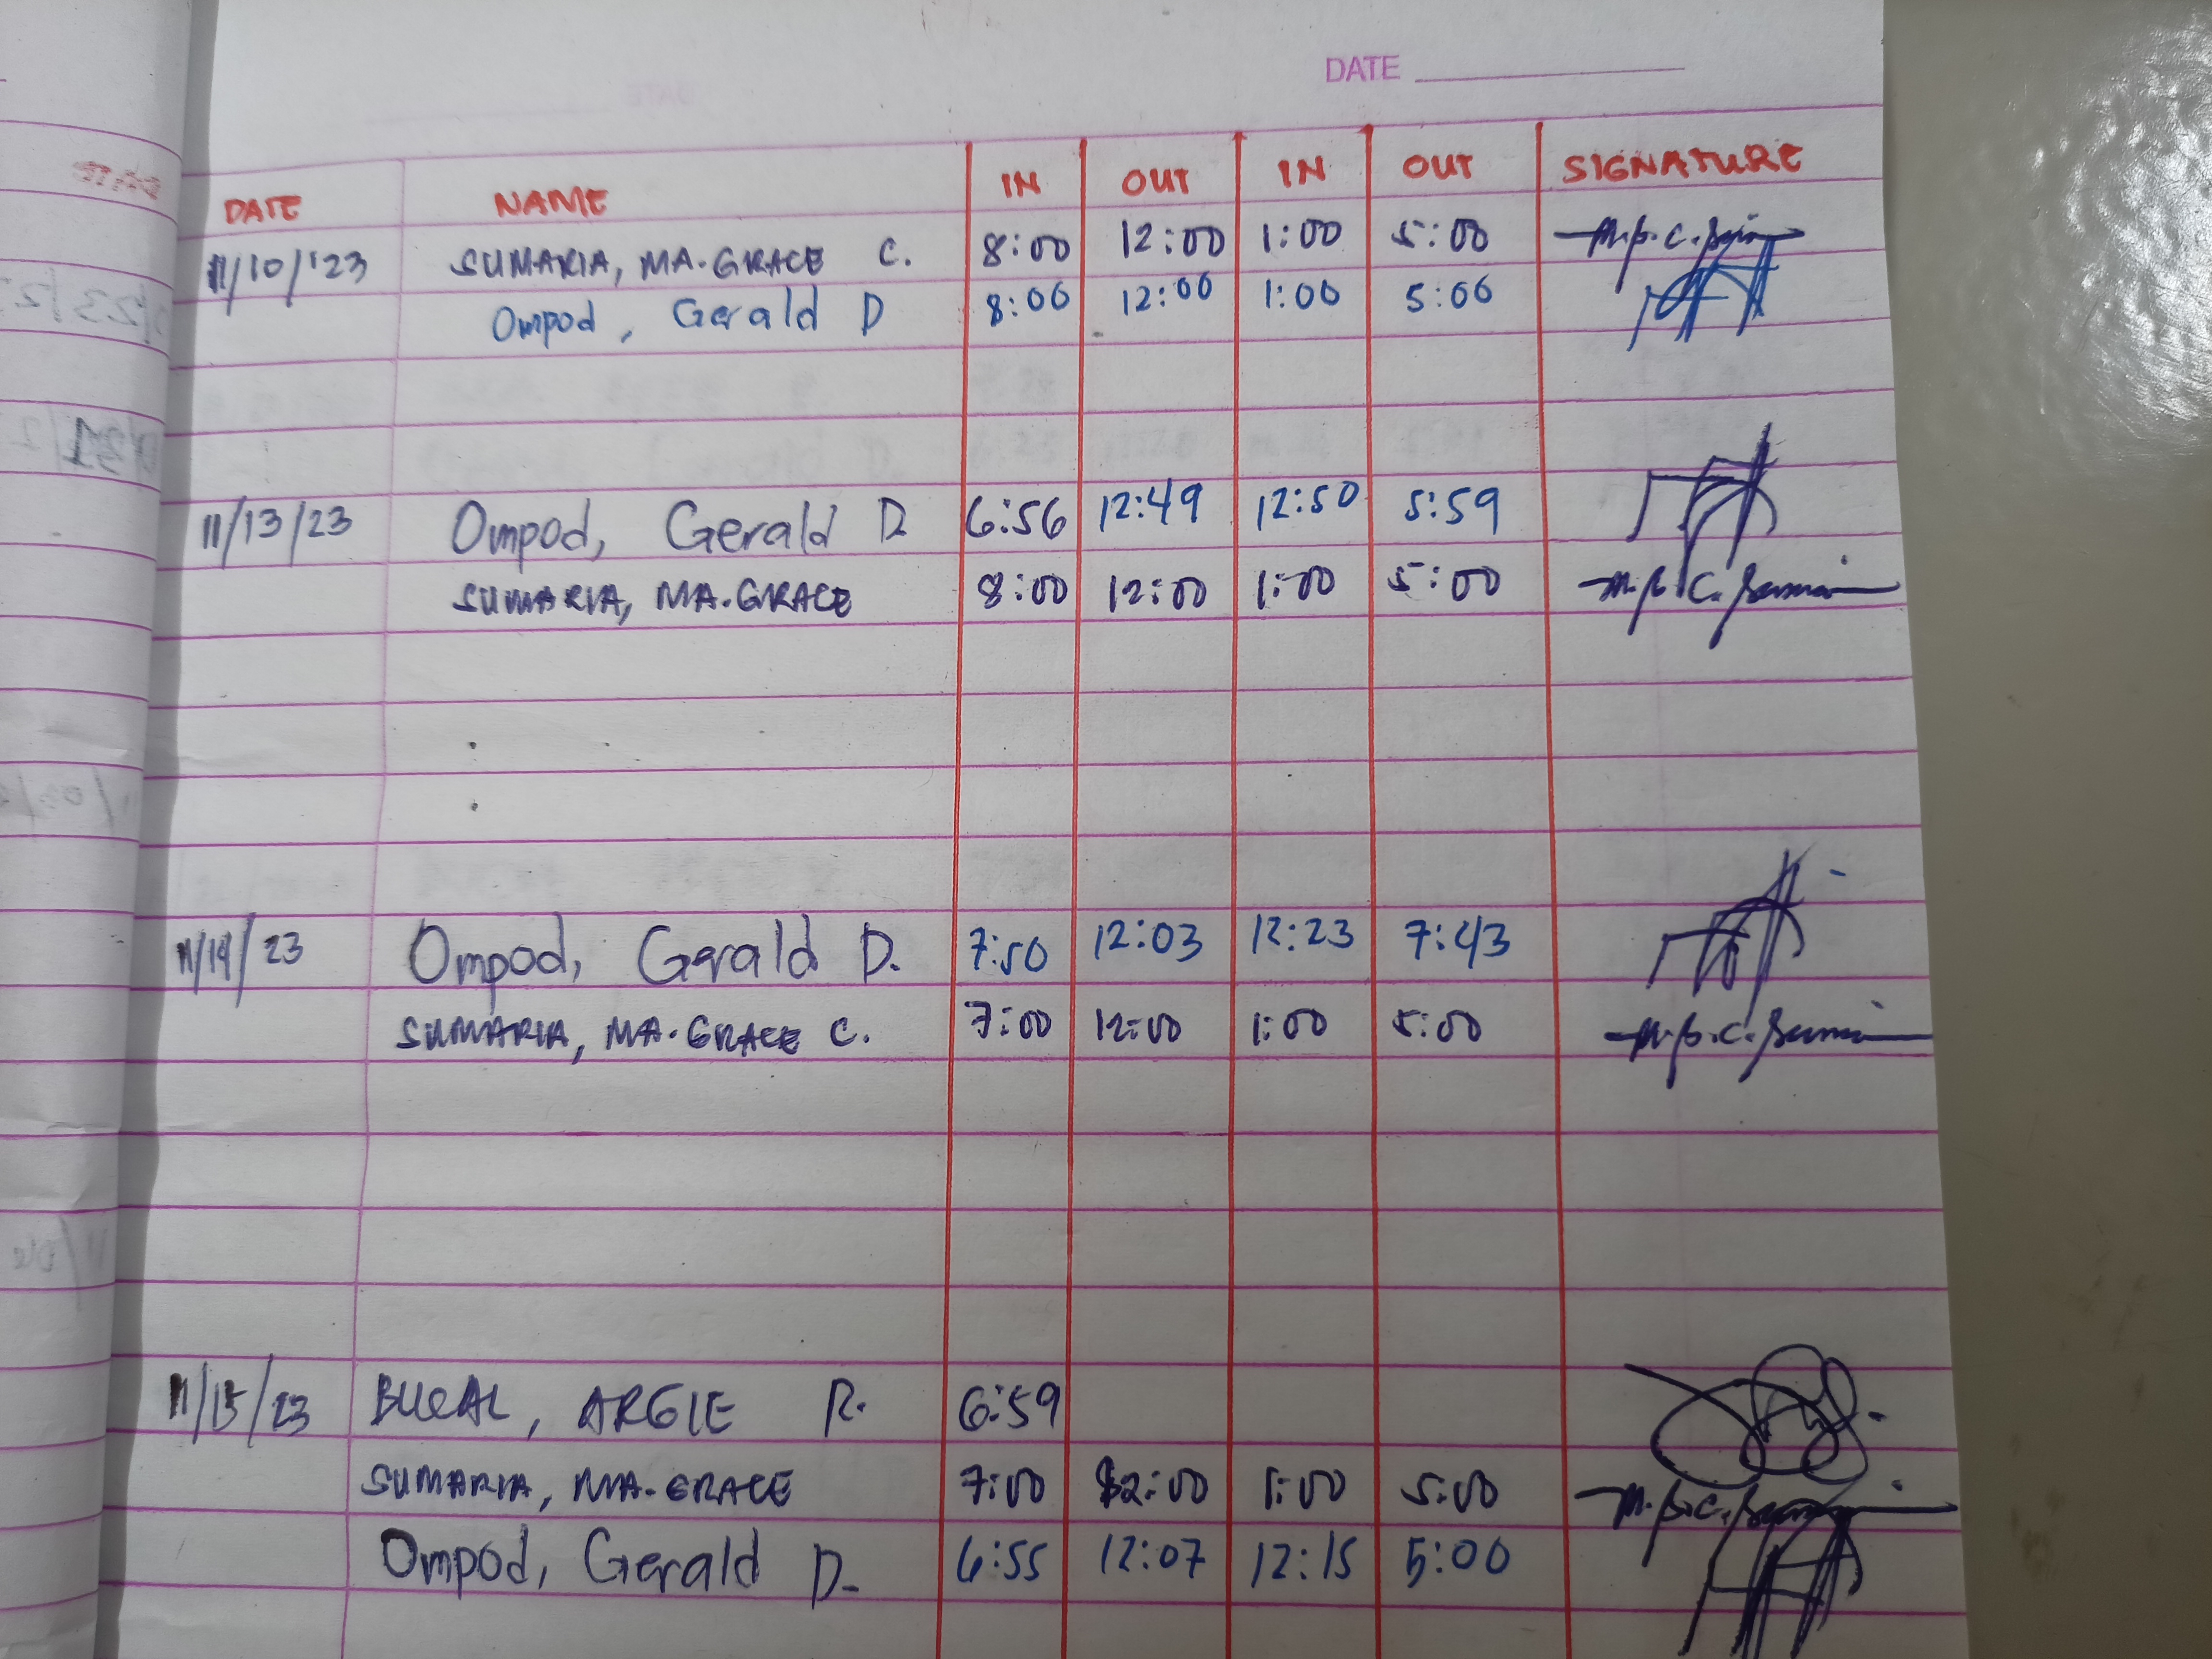 DATE
DATE NAME IN OUT IN OUT SIGNATURE
11/10/'23 SUMARIA, MA. GRACE C. 8:00 12:00 1:00 5:00
Ompod, Gerald D 8:00 12:00 1:00 5:00
11/13/23 Ompod, Gerald D. 6:56 12:49 12:50 5:59
SUMARIA, MA. GRACE 8:00 12:00 1:00 5:00
11/14/23 Ompod, Gerald D. 7:50 12:03 12:23 7:43
SUMARIA, MA. GRACE C. 7:00 12:00 1:00 5:00
11/15/23 BUCAL, ARGIE R. 6:59
SUMARIA, MA. GRACE 7:00 12:00 1:00 5:00
Ompod, Gerald D. 6:55 12:07 12:15 5:00